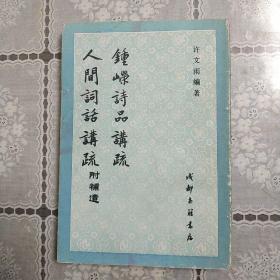 许文雨编著
鍾嶸詩品講疏
人間詞話講疏附補遺
成都古籍書店